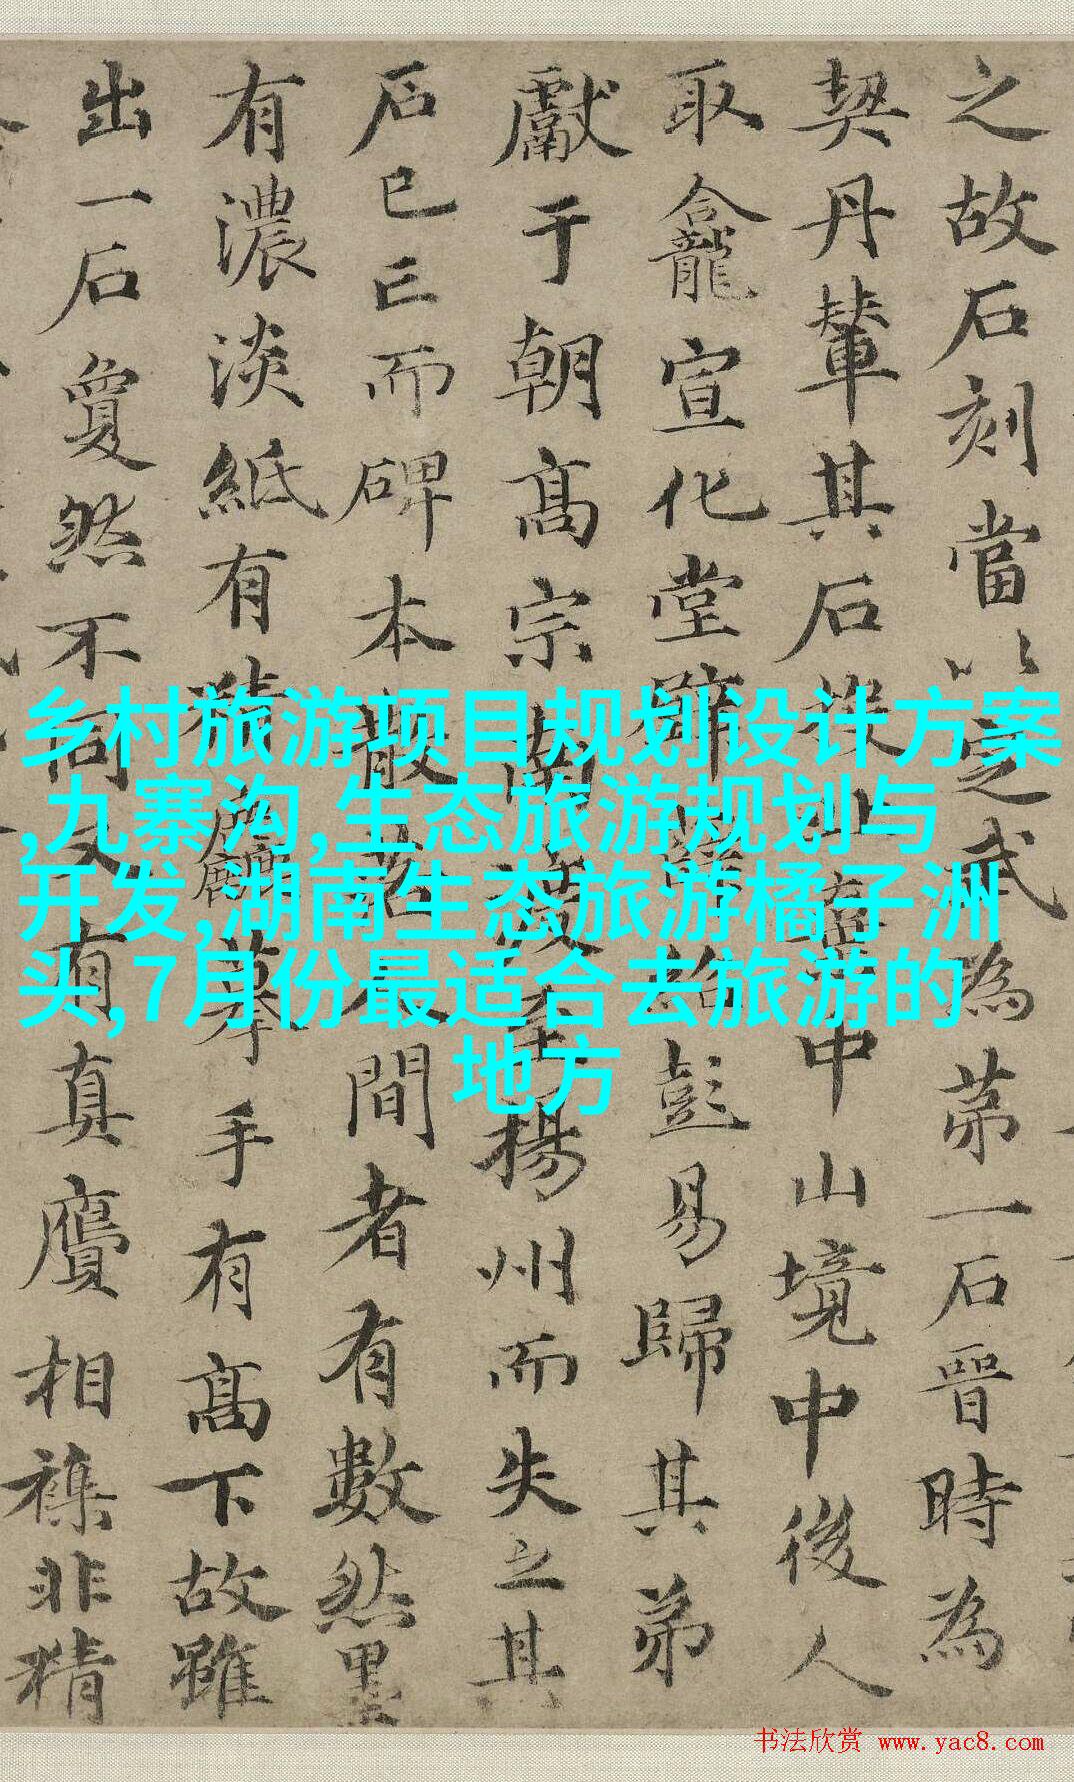 之故石刻當以定武為苐一石晉時為
契丹輦其石中山境中後人
取龕宣化堂薛紹彭易歸其弟
獻于朝高宗南渡至揚州而失之其
石已亡而碑本散落人間者有數然墨
有濃淡紙有精麤摹手有高下故雖
出一石夐然不同又有真贗相襍非精
乡村旅游项目规划设计方案
,九寨沟,生态旅游规划与
开发,湖南生态旅游橘子洲
头,7月份最适合去旅游的
地方
书法欣赏 www.yac8.com